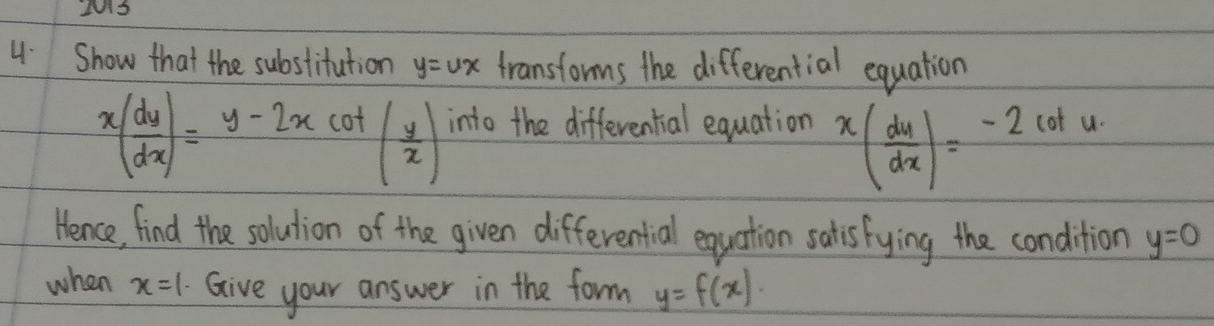 2013
4. Show that the substitution y=ux transforms the differential equation
x(dy/dx) = y - 2x cot (y/x) into the differential equation x(du/dx) = -2 cot u.
Hence, find the solution of the given differential equation satisfying the condition y=0
when x=1. Give your answer in the form y=f(x).